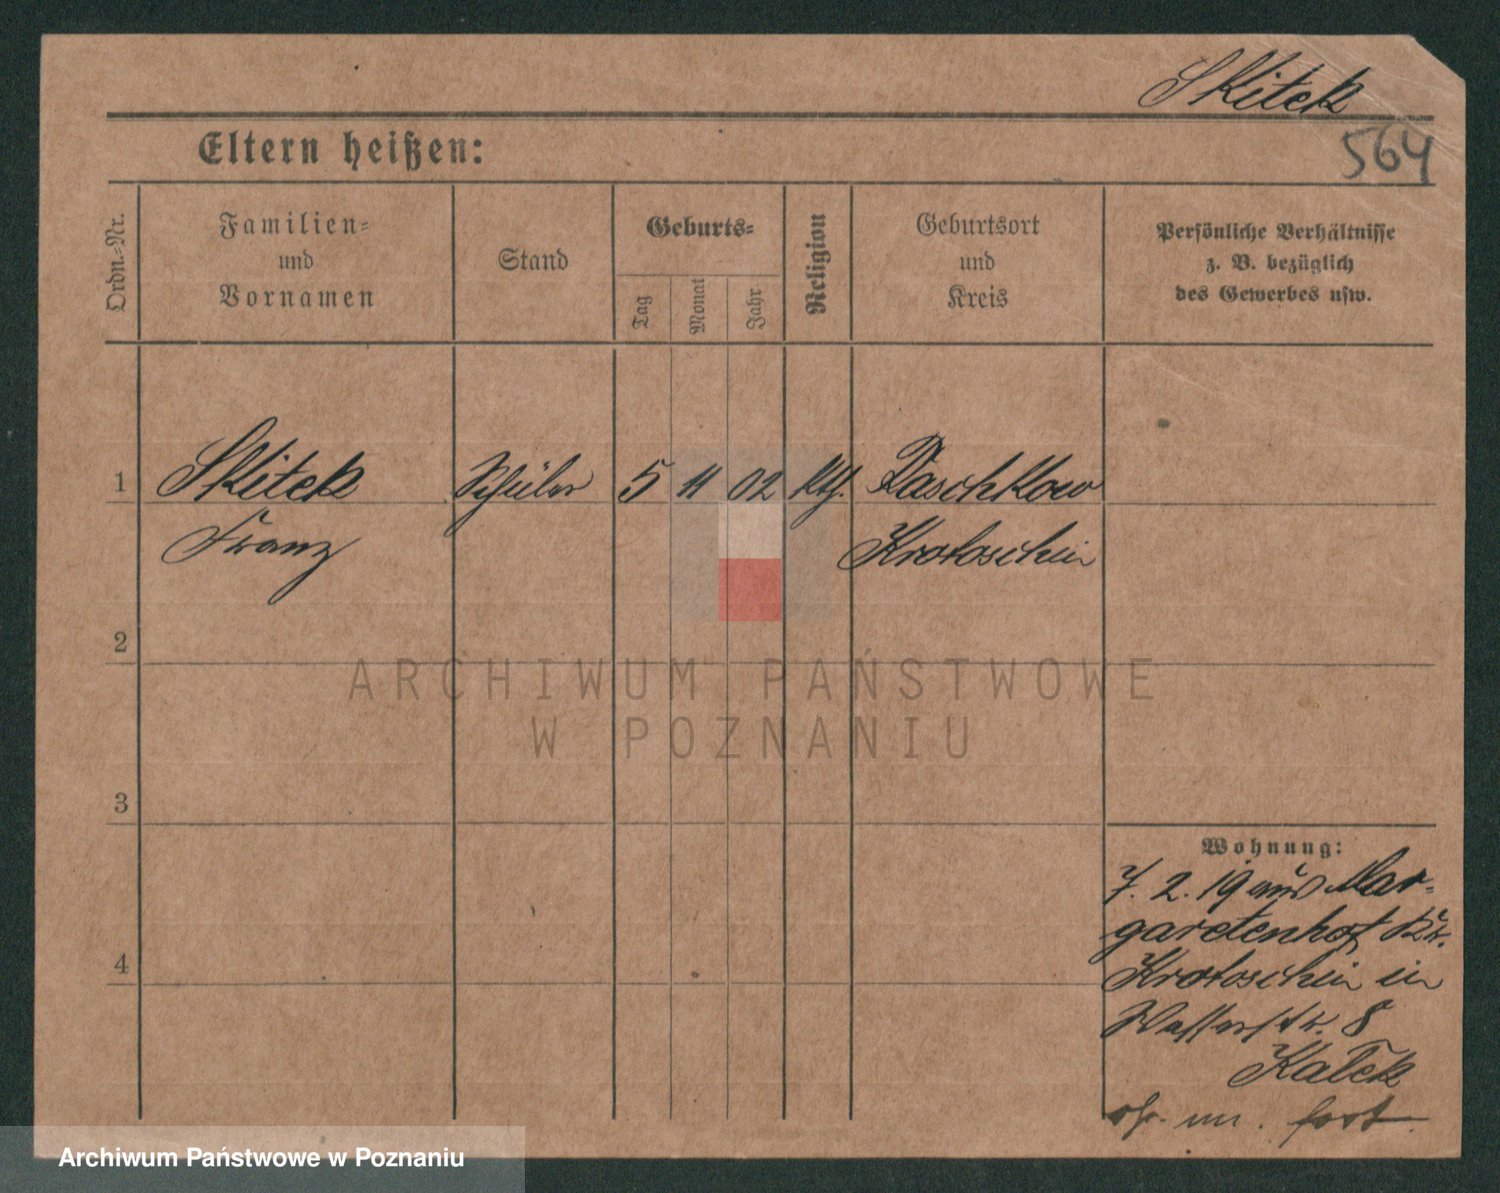 Skitek
564
Eltern heißen:
Ordn.-Nr.
Familien-
und
Vornamen
Stand
Geburts-
Tag
Monat
Jahr
Religion
Geburtsort
und
Kreis
Persönliche Verhältnisse
z. B. bezüglich
des Gewerbes usw.
1 Skitek Schüler 5 11 02 kth. Raschkow
Franz Krotoschin
2
3
4
Wohnung:
7. 2. 19 aus Mar-
garetenhof Kr.
Krotoschin in
Wasserstr. 8
Katek
fort.
ARCHIWUM PAŃSTWOWE
W POZNANIU
Archiwum Państwowe w Poznaniu